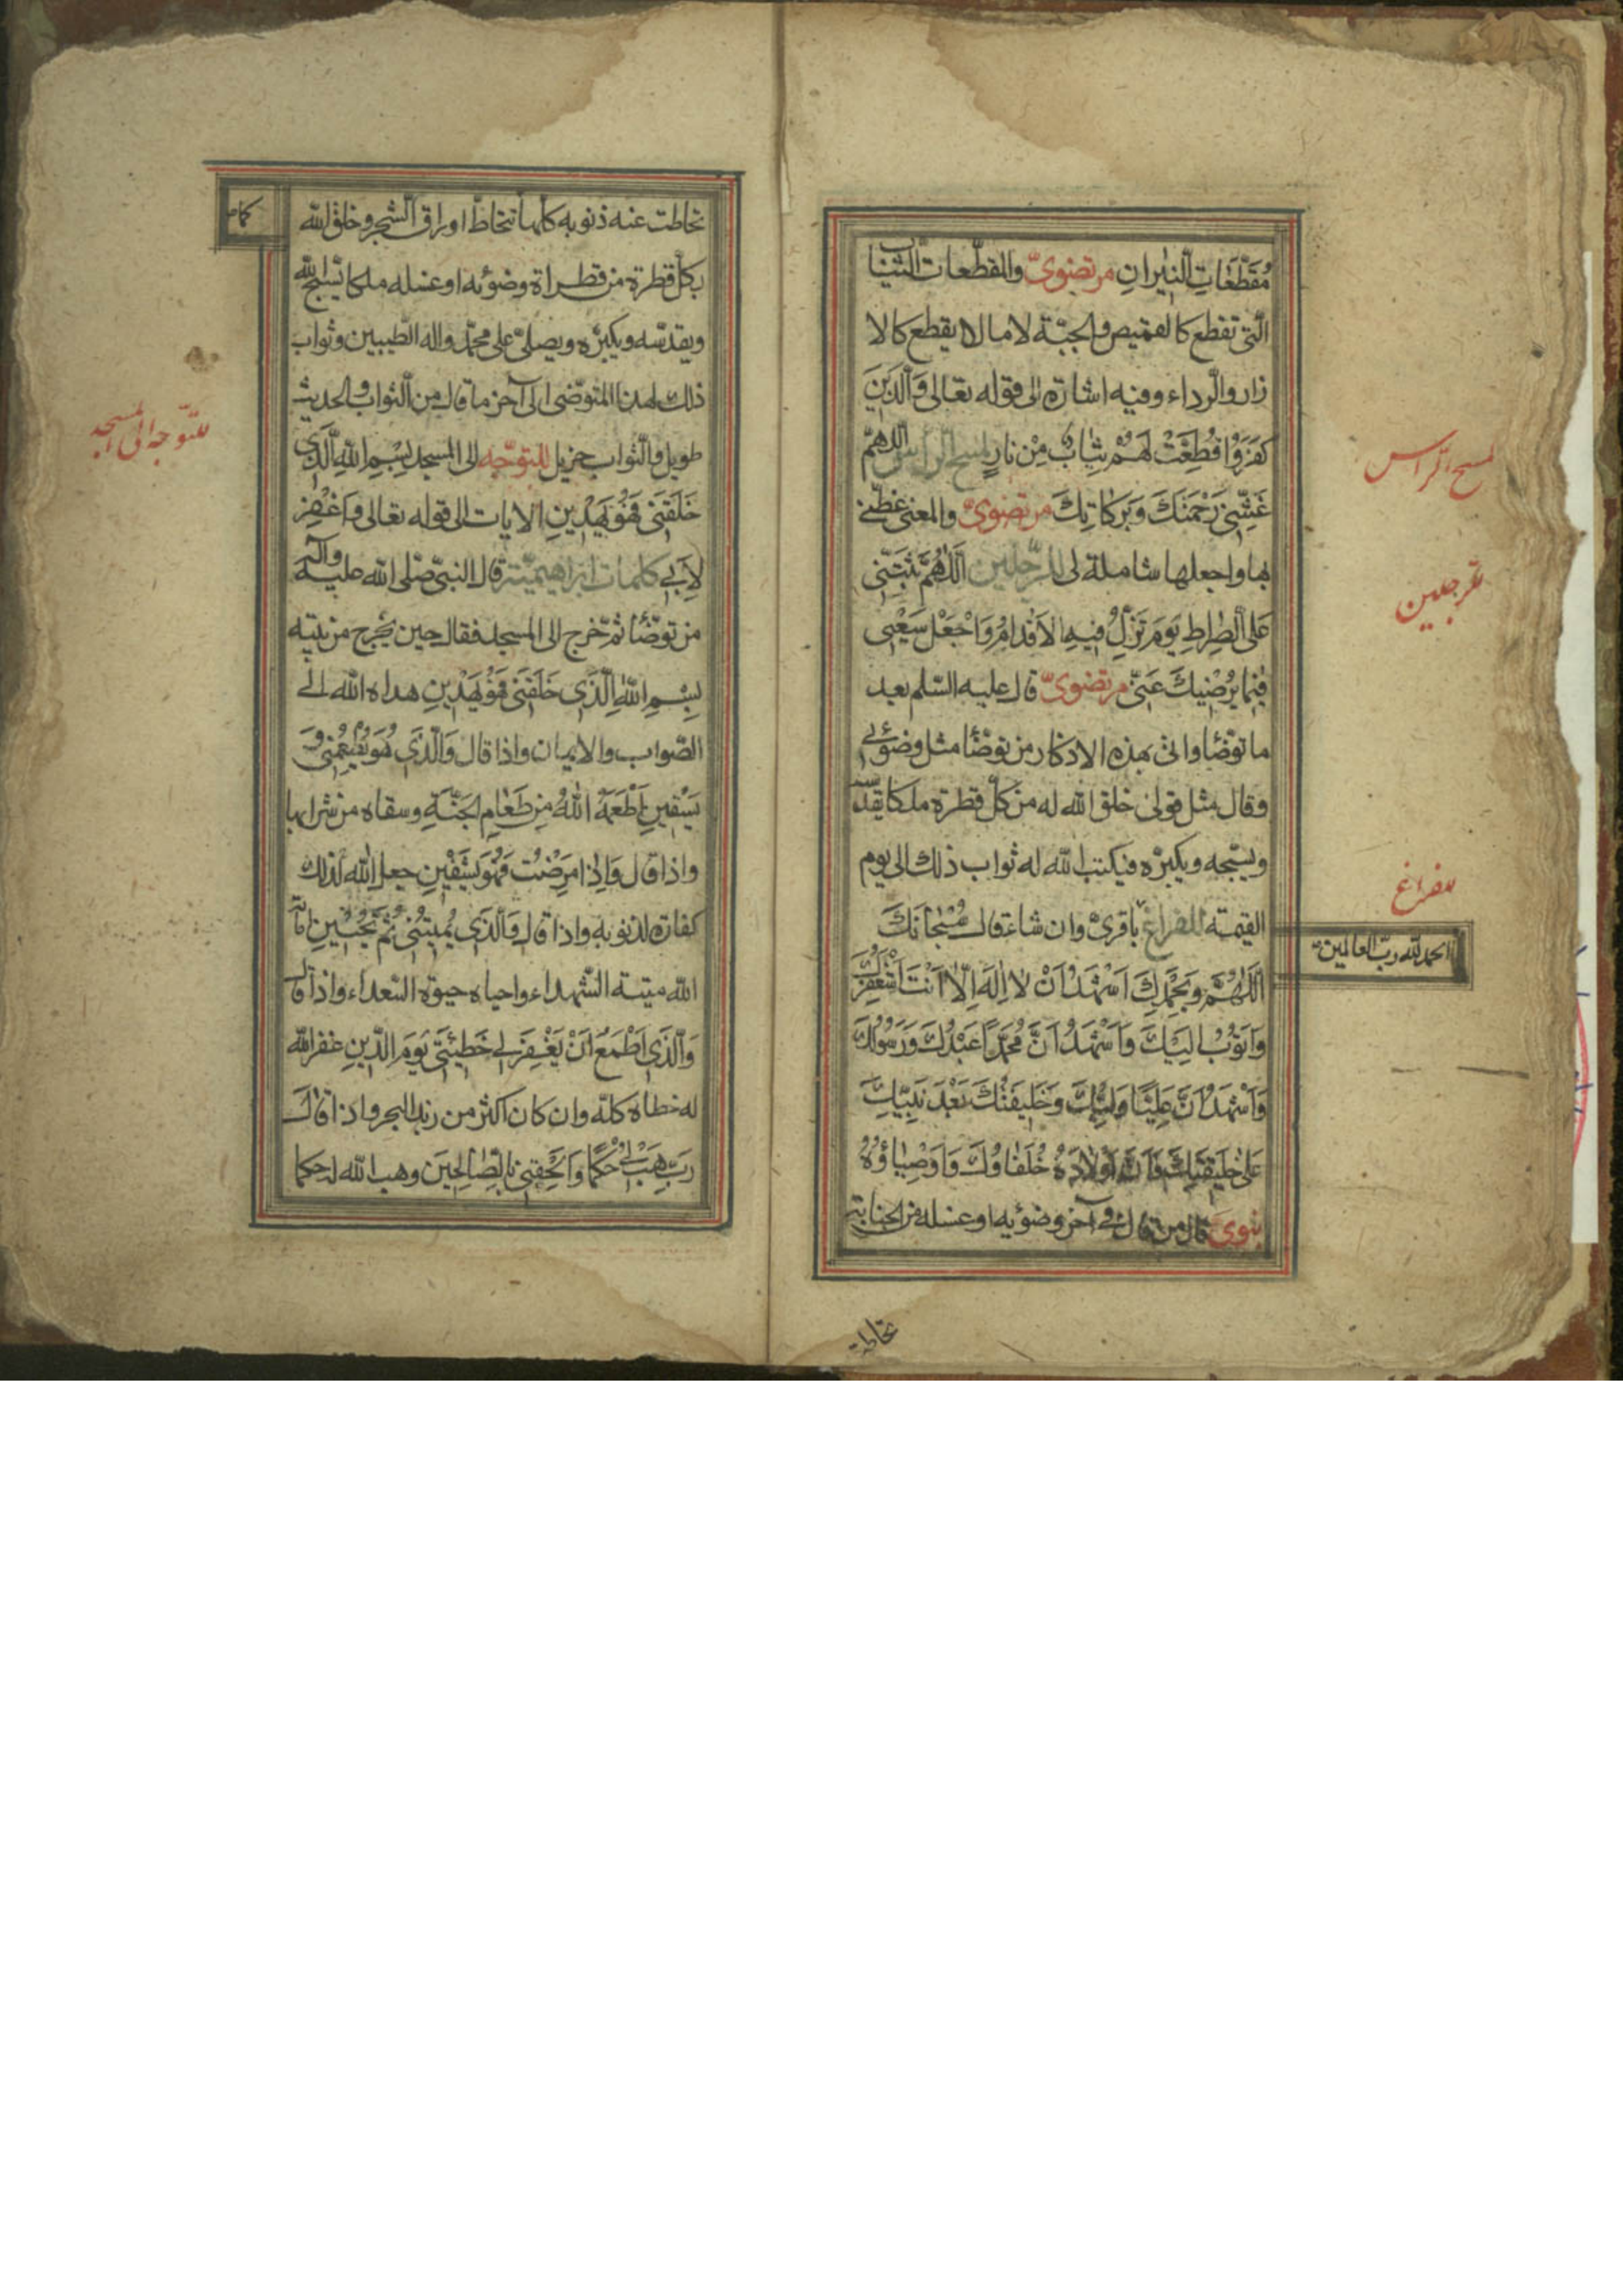 مُقَطَّعَاتِ النّيرانِ مرتضویّ والمقطّعات الثياب
الّتى تقطع كالقميص والجبّة لا ما لا يقطع كالا
زار والرّداء وفيه اشارة الى قوله تعالى وَالَّذينَ
كَفَرُوا قُطِّعَتْ لَهُمْ ثِيابٌ مِنْ نارٍ لمسح الرّأس اَللّهمّ
غَشِّنى رَحْمَتَكَ وَبَرَكاتِكَ مرتضویّ والمعنى غطّنى
بها واجعلها شاملة لى للرّجلين اَللّهُمَّ ثَبِّتْنى
عَلَى الصِّراطِ يَوْمَ تَزِلُّ فيهِ الاَقْدامُ وَاجْعَلْ سَعْيى
فيما يُرْضيكَ عَنّى مرتضویّ قال عليه السّلم بعد
ما توضّأ واتى بهذه الاذكار من توضّأ مثل وضوئى
وقال مثل قولى خلق الله له من كلّ قطرة ملكا يقدّسه
ويسبّحه ويكبّره فيكتب الله له ثواب ذلك الى يوم
القيمة للفراغ باقریّ وان شاء قال سُبْحانَكَ
اَللّهُمَّ وَبِحَمْدِكَ اَشْهَدُ اَنْ لا اِلهَ اِلّا اَنْتَ اَسْتَغْفِرُكَ
وَاَتُوبُ اِلَيْكَ وَاَشْهَدُ اَنَّ مُحَمَّدًا عَبْدُكَ وَرَسُولُكَ
وَاَشْهَدُ اَنَّ عَلِيًّا وَلِيُّكَ وَخَليفَتُكَ بَعْدَ نَبِيِّكَ
عَلى خَليقَتِكَ وَاَنَّ اَوْلادَهُ خُلَفاؤُكَ وَاَوْصِياؤُهُ
نبوی قال من قال فى آخر وضوئه او غسله من الجنابة
تحاطت
مسح الرّاس
للرّجلين
للفراغ
الحمد لله ربّ العالمين
تحاطت عنه ذنوبه كلها كما تتحاطّ اوراق الشجر وخلق الله
بكلّ قطرة من قطراة وضوئه او غسله ملكا يسبّح الله
ويقدّسه ويكبّره ويصلّى على محمّد واله الطّيبين وثواب
ذلك لهذا المتوضّى الى آخر ما قال من الثواب والحديث
طويل والثواب جزيل للتوجّه الى المسجد بِسْمِ اللهِ الَّذى
خَلَقَنى فَهُوَ يَهْدينِ الايات الى قوله تعالى وَاغْفِرْ
لِاَبى كلمات ابراهيميّة قال النبىّ صلى الله عليه وآله
من توضّأ ثمّ خرج الى المسجد فقال حين يخرج من بيته
بِسْمِ اللهِ الَّذى خَلَقَنى فَهُوَ يَهْدينِ هداه الله الى
الصّواب والايمان واذا قال وَالَّذى هُوَ يُطْعِمُنى وَ
يَسْقينِ اَطْعَمَهُ اللهُ مِن طَعامِ الجَنَّةِ وسقاه من شرابها
واذا قال وَاِذا مَرِضْتُ فَهُوَ يَشْفينِ جعل الله ذلك
كفارة لذنوبه واذا قال وَالَّذى يُميتُنى ثُمَّ يُحْيينِ اماته
الله ميتة الشّهداء واحياه حيوة السّعداء واذا قال
وَالَّذى اَطْمَعُ اَنْ يَغْفِرَ لى خَطيئَتى يَوْمَ الدّينِ غفر الله
له خطاه كلّه وان كان اكثر من زبد البحر واذا قال
رَبِّ هَبْ لى حُكْمًا وَاَلْحِقْنى بِالصّالِحينَ وهب الله له حكما
للتّوجّه الى المسجد
كما